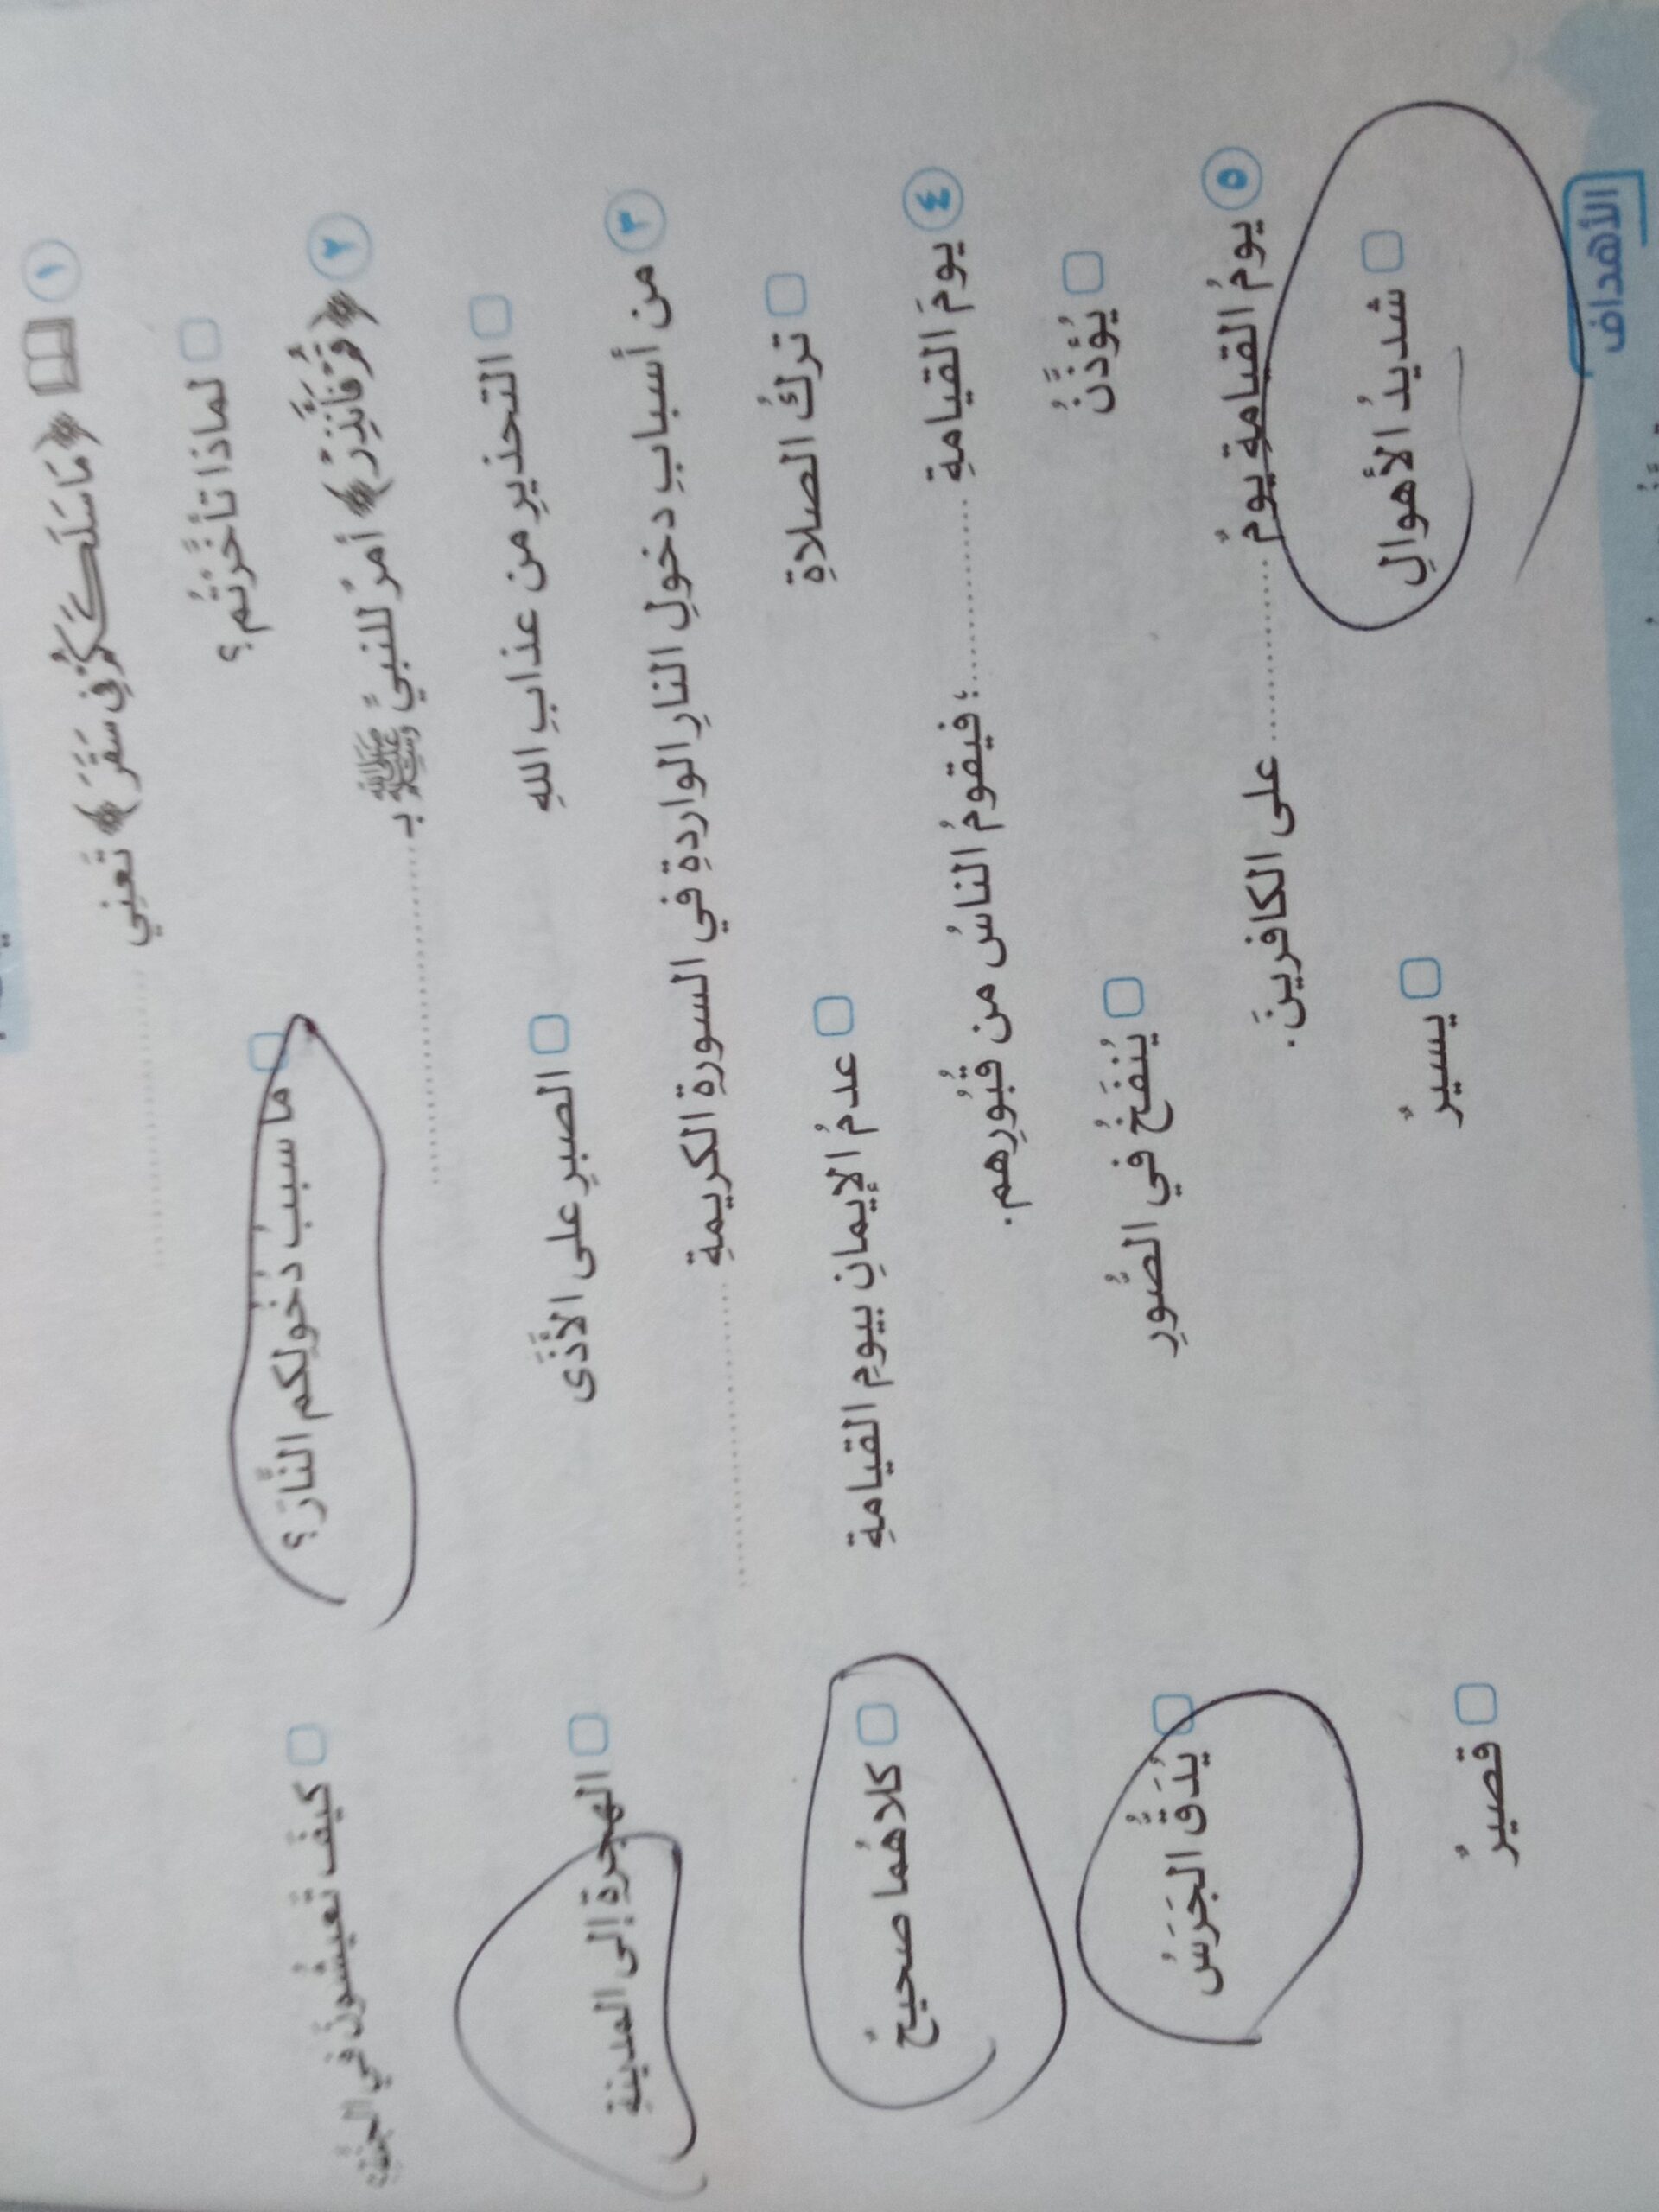 ١ ﴿مَا سَلَكَكُمْ فِي سَقَرَ﴾ تَعنِي ....................
لماذا تأخَّرْتُم؟ ما سببُ دُخُولِكم النَّارَ؟ كيفَ تَعيشُونَ في الجَنَّةِ
٢ ﴿قُمْ فَأَنذِرْ﴾ أمرٌ للنبيِّ ﷺ بـ ....................
التحذيرِ من عذابِ اللهِ الصبرِ على الأَذَى الهجرةِ إلى المدينةِ
٣ من أسبابِ دخولِ النارِ الواردةِ في السورةِ الكريمةِ ....................
تركُ الصلاةِ عدمُ الإيمانِ بيومِ القيامةِ كلاهُما صحيحٌ
٤ يومَ القيامةِ ....................؛ فيقومُ الناسُ من قُبُورِهم.
يُؤذَّنُ يُنفَخُ في الصُّورِ يُدَقُّ الجَرَسُ
٥ يومُ القيامةِ يومٌ .................... على الكافرينَ.
شديدُ الأهوالِ يسيرٌ قصيرٌ
الأهداف